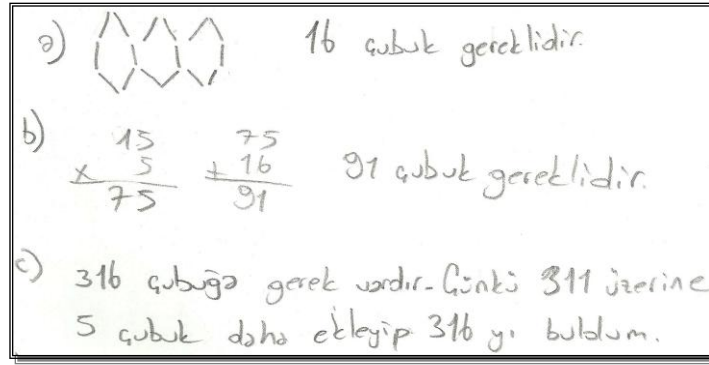 a) 16 çubuk gereklidir.
b) 15 75
x 5 + 16
75 91 91 çubuk gereklidir.
c) 316 çubuğa gerek vardır. Çünkü 311 üzerine
5 çubuk daha ekleyip 316 yı buldum.